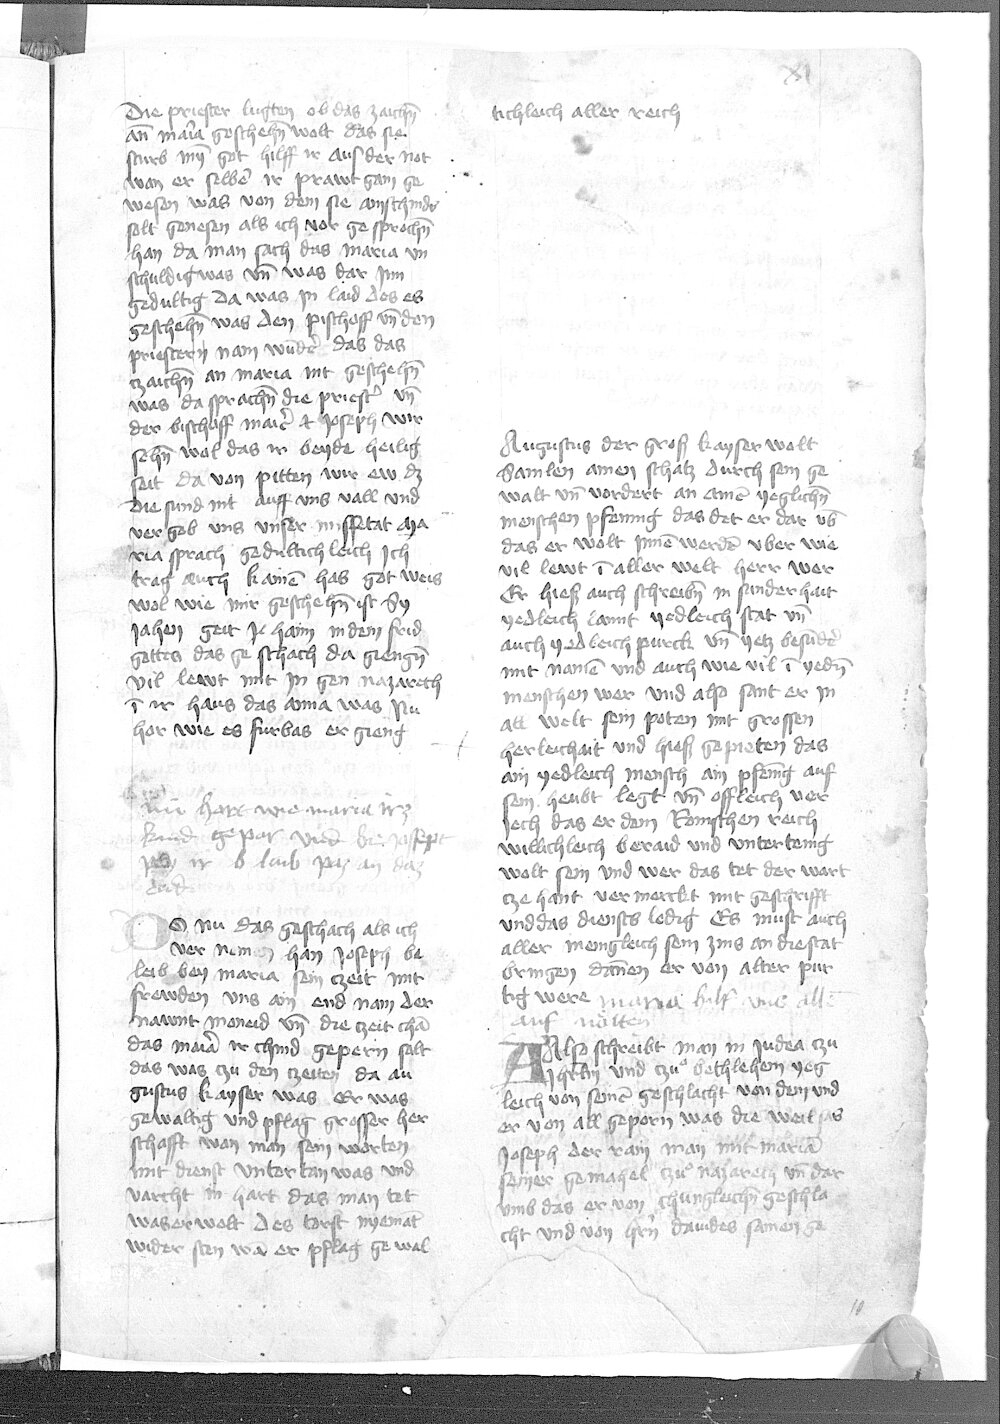 XI
Die priester lugten ob das zaichñ
an maria geschehñ wolt das sie
sturb mȳ got hilff ir aus der not
wan er selbē ir prawtgam ge
wesen was von dem sie
solt genesen als ich vor gesprochñ
han da man sach das maria vn
schuldig was vñ was dar jnn
gedultig Da was jn laid des es
geschehñ was den pischoff vñ den
priestern nam wūder das das
czaichñ an maria nit geschehñ
was da sprachñ die priestˀ vñ
der bischoff joseph wir
sehñ wol das ir beyde heilig
seit da von pitten wir ew dz
die sund nit auff vns vall vnd
vergeb vns vnser missetat Ma
ria sprach gedultichleich Ich
trag auch kainē has got weis
wol wie mir geschehñ ist Sy
jahen geit haim in dem frid
gottes das geschach da giengñ
vil lewt mit jn gen nazareth
ī ir haus das anna was Nu
hor wie es furbas ergieng
Nu hort wie maria irz
kind gepar vnd
ir
DO nu das geschach als ich
vernomen han Joseph be
leib bey maria sein czeit mit
frewden vns ain end nam der
nawnt moneid vñ die czeit chā
das maīa ir chind gepern solt
das was czu den czeiten da au
gustus kayser was Er was
gewaltig vnd pflag grosser her
schafft wan man sein worten
mit dienst vntertan was vnd
varcht in hart das man tet
was er wolt Des torst nyemāt
wider sten wā er pflag gewal
tichleich aller reich
Augustus der groß kayser wolt
Samlen ainen schatz durch sein ge
walt vñ vordert an ainē yeglichñ
menschen pfennig das det er dar vb̄
das er wolt jnnē werdē vber wie
vil lewt ī aller welt herr wer
Er hieß auch schreibñ in sunderhait
yedleich lannt yedleich stat vñ
auch yedleich purck vñ yetz besūder
mit namē vnd auch wie vil ī yedñ
menschen wer vnd also sant er in
all welt sein poten mit grossen
herleichait vnd hieß gepieten das
ain yedleich mensch ain pfēnig auf
sein heubt legt vñ offleich ver
jech das er dem Romischen reich
willichleich beraid vnd vntertenig
wolt sein vnd wer das tet der wart
cze hant vermerckt mit geschrifft
vnd das diensts ledig Es must auch
aller menigleich sein zins an die stat
bringen dannen er von alter pur
tig were maria hilf vns allē
auf nötten
Also schreibt man in judea czu
vnd czu bethlehem yeg
leich von seinē geschlacht von dem vnd
er von all geporn was die weil
Joseph der rain man mit mariā
seiner gemahel czu nazareth vñ dar
vmb das er von chungleichē geschla
cht vnd von hr̄n dauides samen ge
10